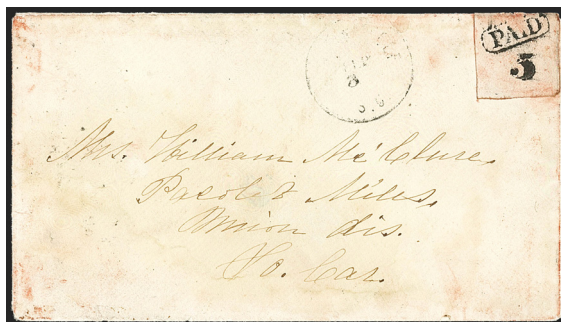 PAID
5
3
S.C
Mrs. William Mc'Clure.
Pacolet Mills,
Union dis.
So. Car.